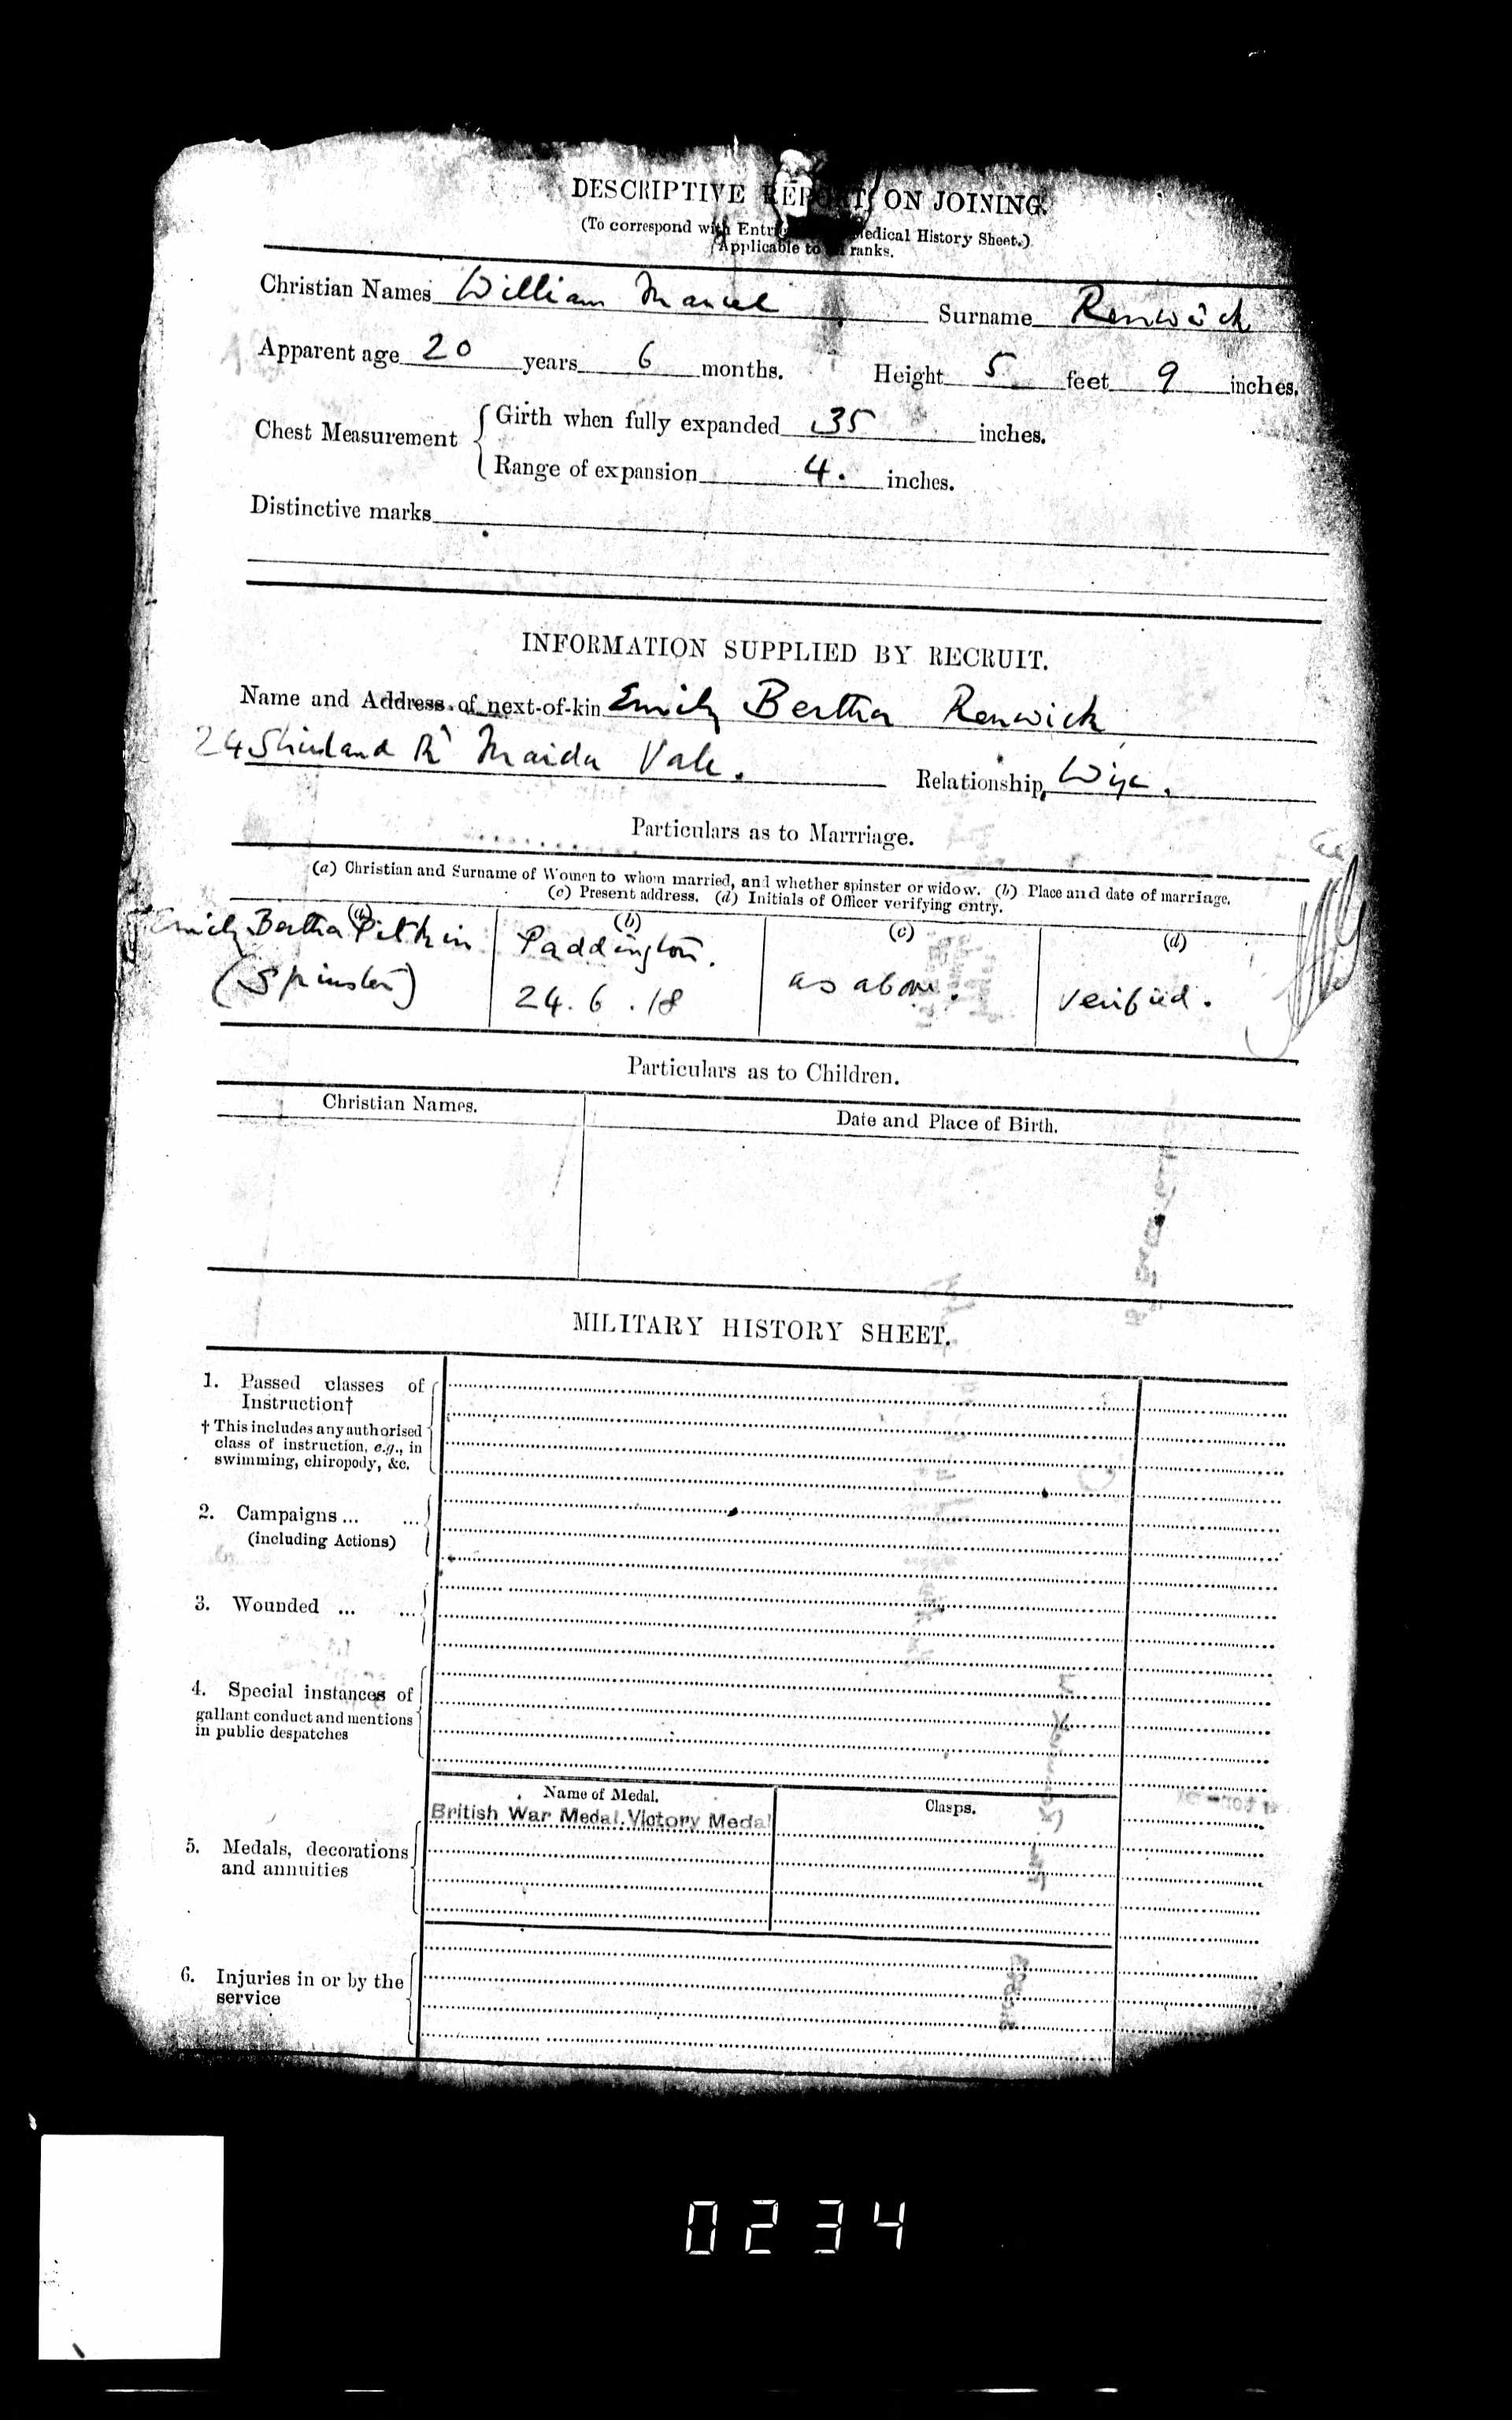 DESCRIPTIVE REPORT ON JOINING.
(To correspond with Entr Medical History Sheet.)
(Applicable to ranks.
Christian Names William Marcel Surname Renwick
Apparent age 20 years 6 months. Height 5 feet 9 inches.
Chest Measurement { Girth when fully expanded 35 inches.
Range of expansion 4. inches.
Distinctive marks
INFORMATION SUPPLIED BY RECRUIT.
Name and Address of next-of-kin Emily Bertha Renwick
24 Rd Maida Vale. Relationship Wife.
Particulars as to Marrriage.
(a) Christian and Surname of Women to whom married, and whether spinster or widow. (b) Place and date of marriage.
(c) Present address. (d) Initials of Officer verifying entry.
(a) (b) (c) (d)
Emily Bertha Pitkin Paddington. as above. verified.
(Spinster) 24.6.18
Particulars as to Children.
Christian Names. Date and Place of Birth.
MILITARY HISTORY SHEET.
1. Passed classes of
Instruction†
† This includes any authorised
class of instruction, e.g., in
swimming, chiropody, &c.
2. Campaigns ... ...
(including Actions)
3. Wounded ... ...
4. Special instances of
gallant conduct and mentions
in public despatches
Name of Medal. Clasps.
British War Medal. Victory Medal
5. Medals, decorations
and annuities
6. Injuries in or by the
service
0234